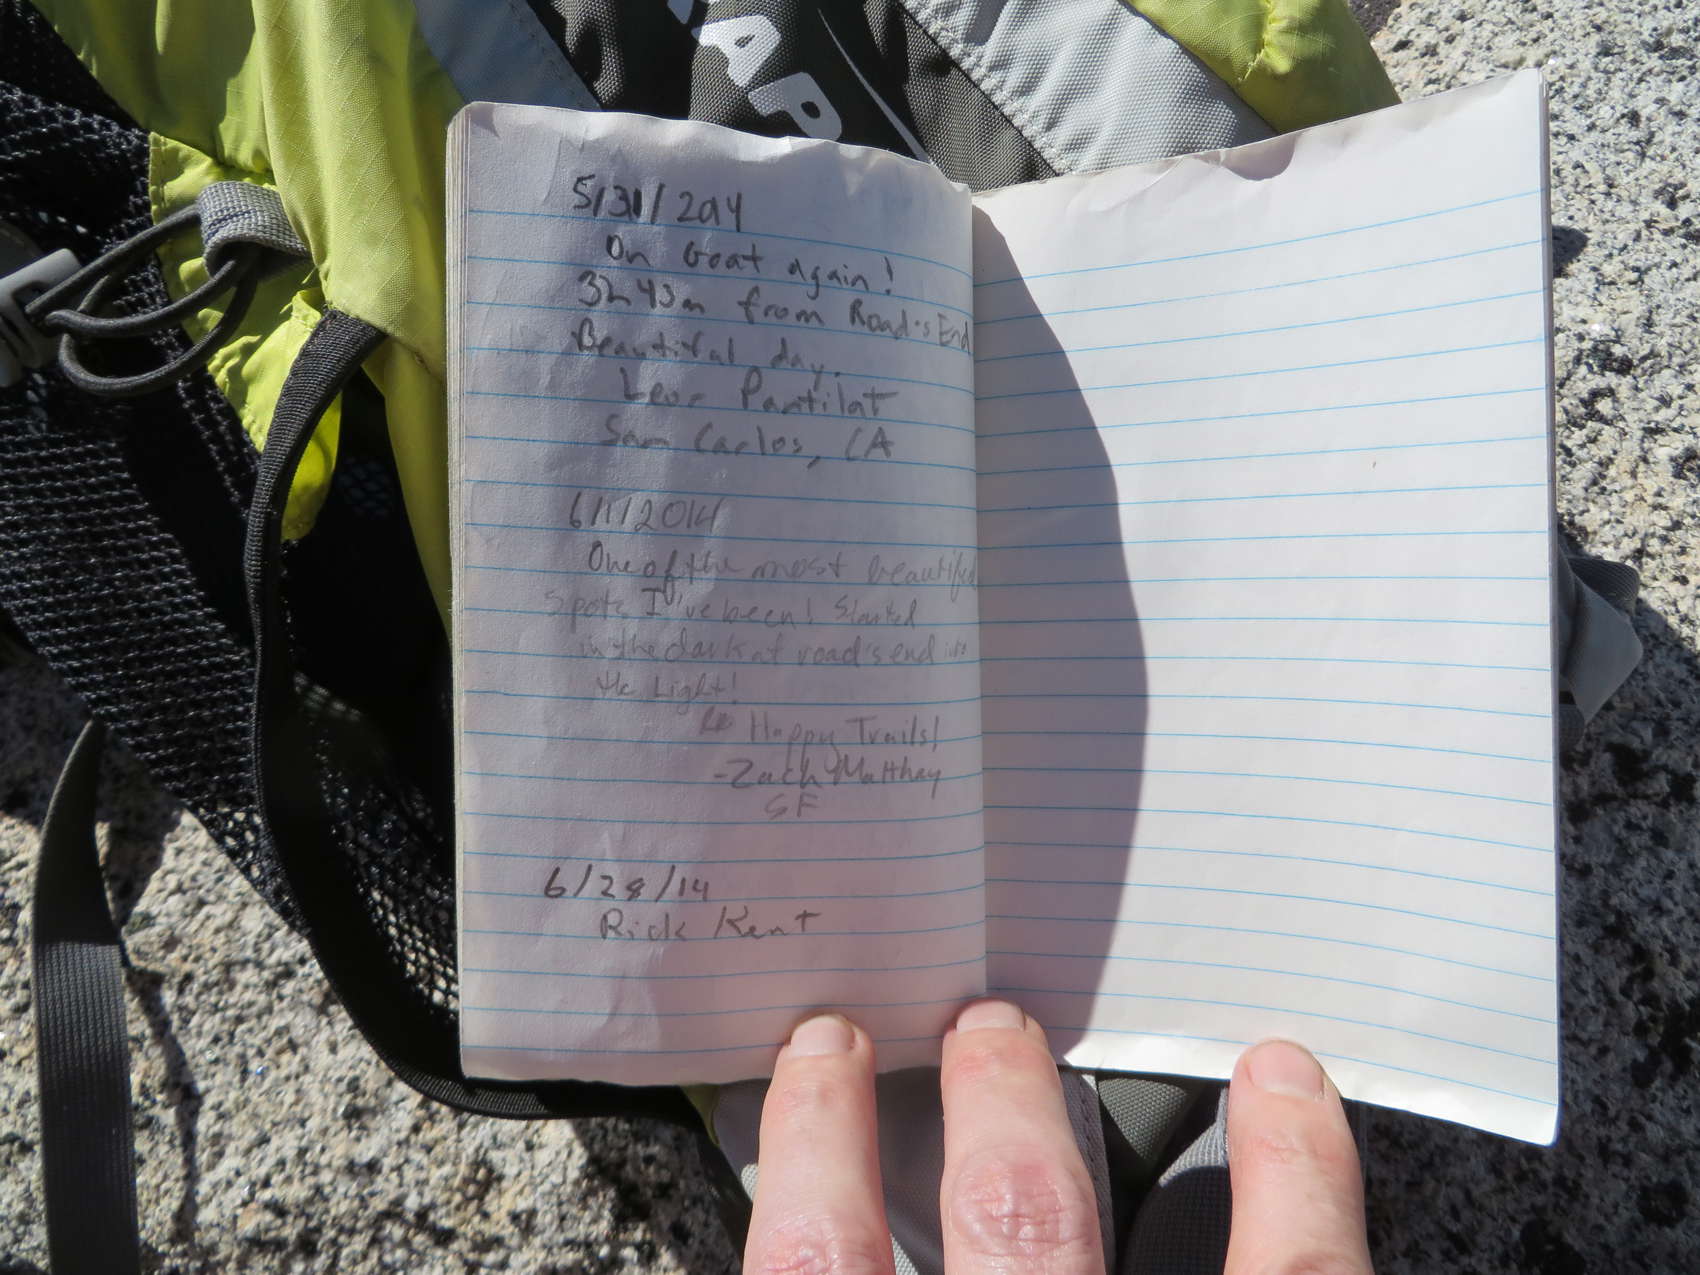 AP
5/31/2014
On Goat again!
3h 43m from Road's End
Beautiful day.
Leor Pantilat
San Carlos, CA
6/1/2014
One of the most beautiful
spots I've been! Started
in the dark at road's end into
the Light!
Happy Trails!
-Zach Matthay
SF
6/28/14
Rick Kent